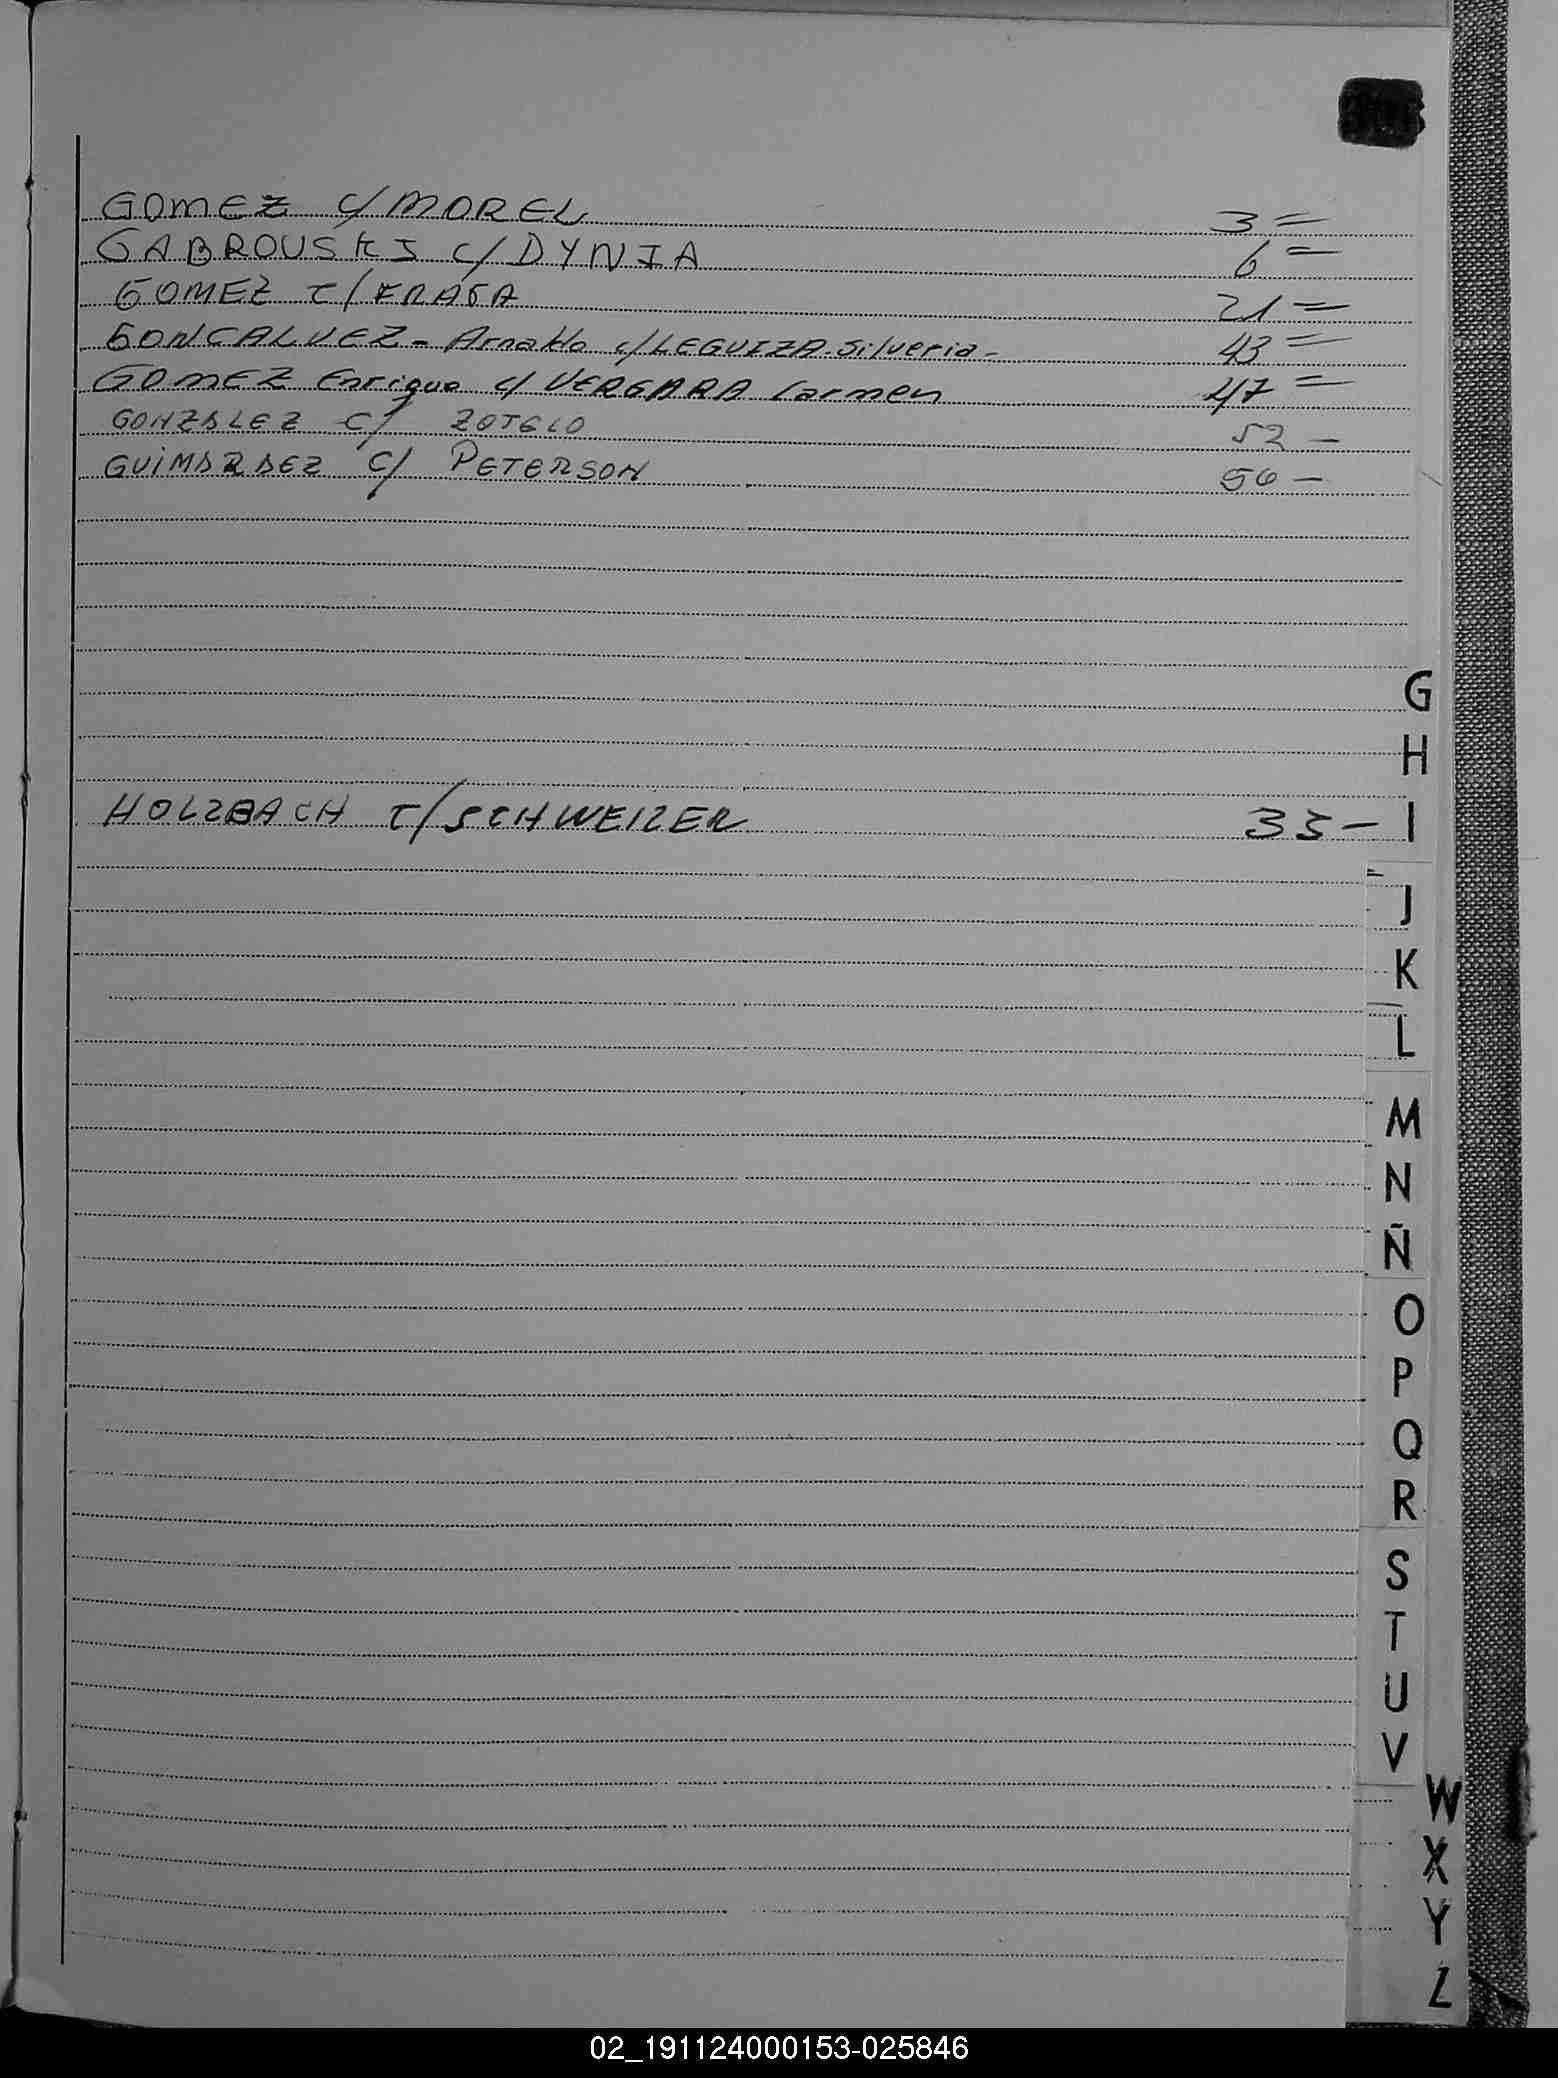 GOMEZ c/ MOREL 3=
GABROUSKI c/ DYNIA 6=
GOMEZ c/ FRAGA 21=
GONCALVEZ - Arnaldo c/ LEGUIZA. Silveria - 43=
GOMEZ Enrique c/ VERGARA Carmen 47=
GONZALEZ c/ ZOTELO 52-
GUIMARAEZ c/ PETERSON 56-
HOLZBACH c/ SCHWEIZER 33-
G
H
I
J
K
L
M
N
Ñ
O
P
Q
R
S
T
U
V
W
X
Y
Z
02_191124000153-025846